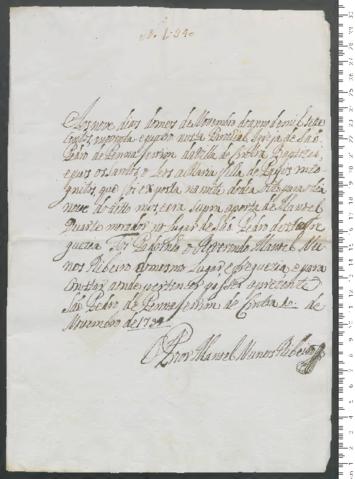 Aos nove dias do mes de Novembro de anno de mil e sete
centos e quarenta e quatro nesta Parrochial Igreja de São
Pedro de Penna ferrim da Villa de Cintra Baptizei,
e pus os santos Oleos a Maria filha de Pays
que foi exposta na noite deste dia
nove do dito mes era supra a porta de Manoel
Duarte morador no lugar de São Pedro desta fre
guezia Foi Padrinho o Reverendo Manoel Nu
nes Ribeiro do mesmo lugar e freguezia e para
constar aonde pertencer passei a prezente
São Pedro de Penna ferrim de Cintra de
Novembro de 1744
O Prior Manoel Nunes Ribeiro